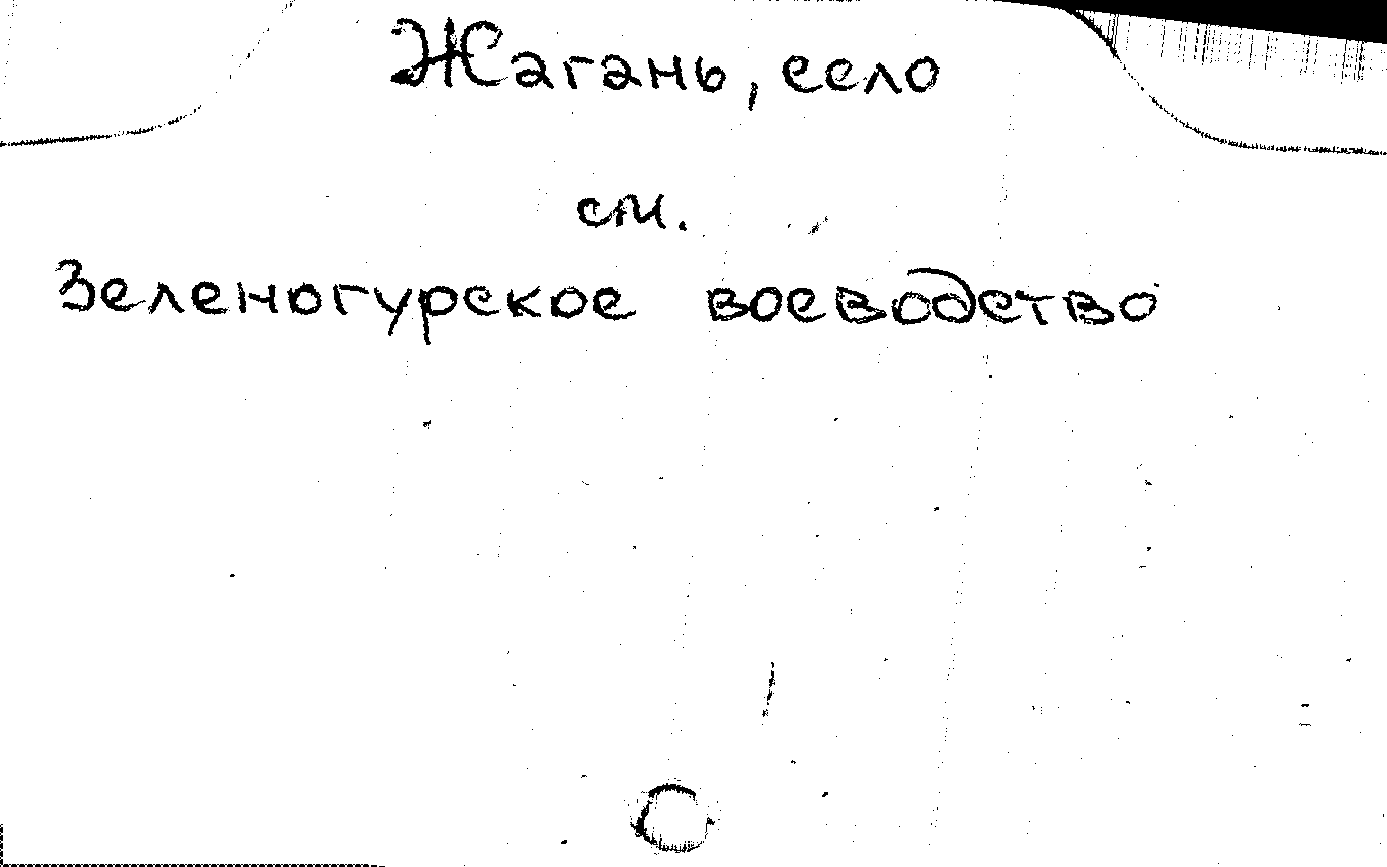 Жагань, село
см.
Зеленогурское воеводство